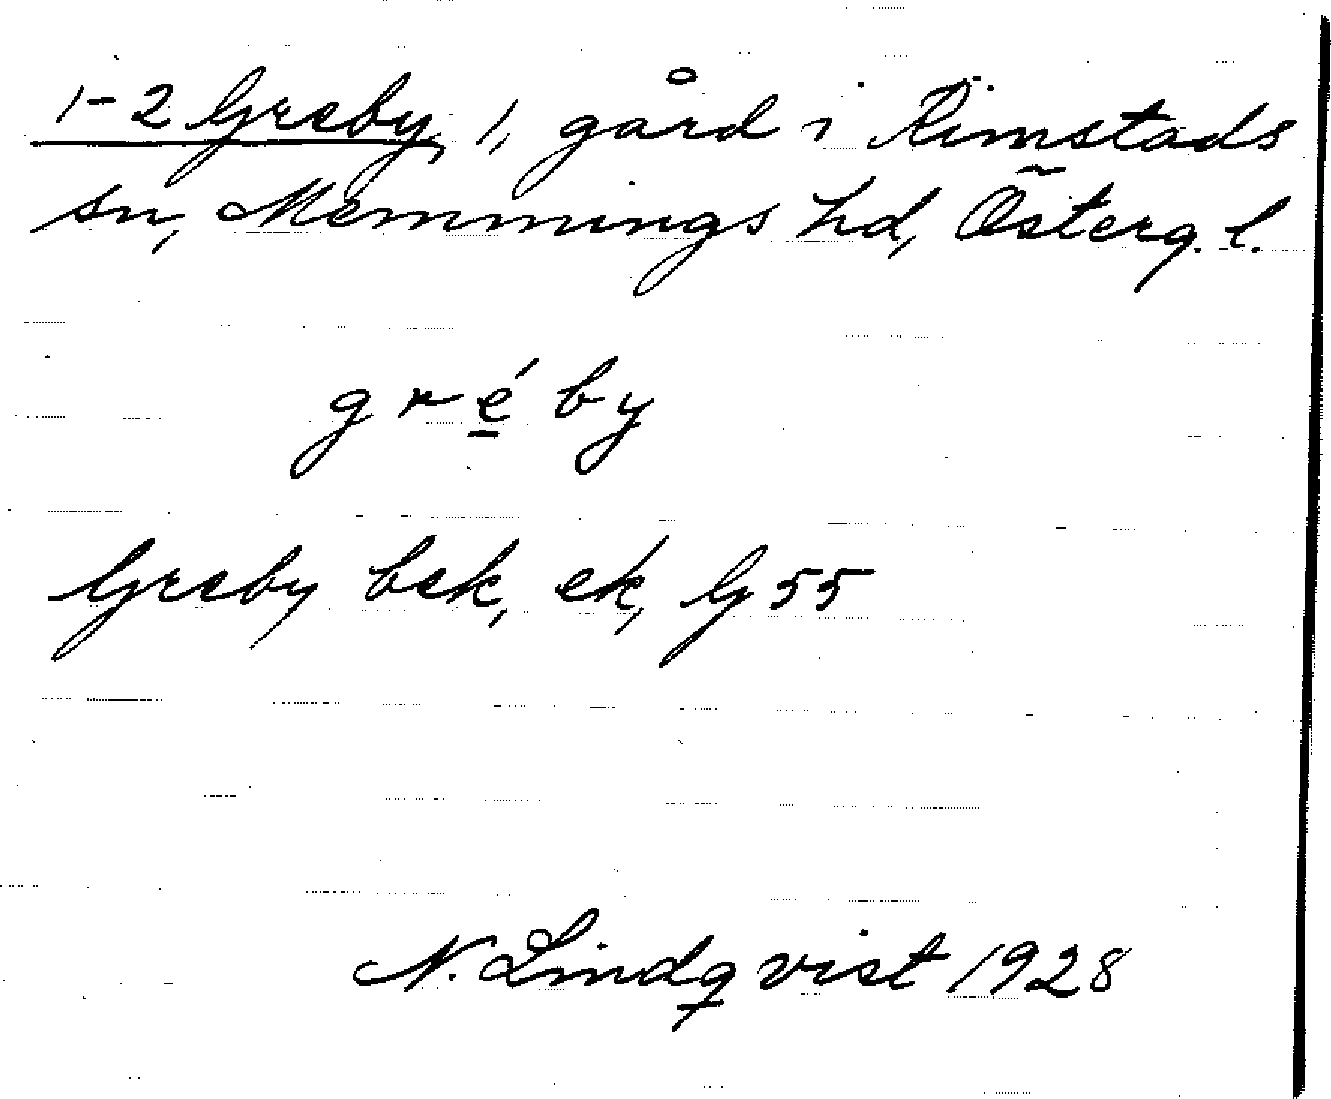 1-2 Greby, 1, gård i Rimstads
sn, Memmings hd, Österg. l.
gréby
Greby bek, ek, G 55
N. Lindqvist 1928